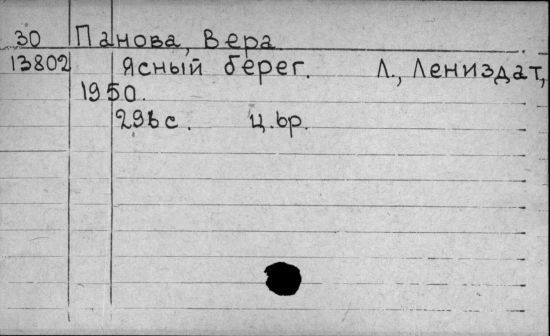 30 Панова, Вера
13802 Ясный берег. Л., Лениздат,
1950.
296 с. ц. 6р.